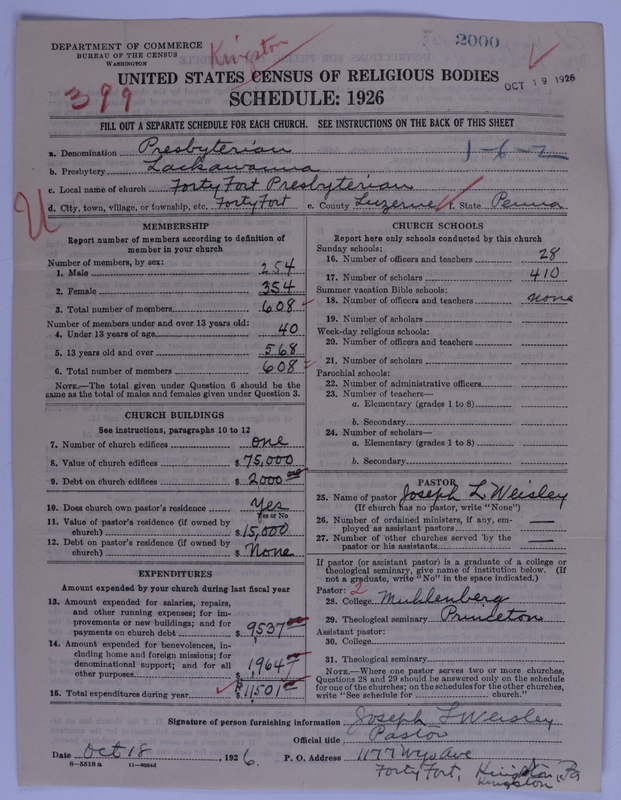 DEPARTMENT OF COMMERCE
BUREAU OF THE CENSUS
WASHINGTON
Kingston
2000
OCT 19 1926
UNITED STATES CENSUS OF RELIGIOUS BODIES
399
SCHEDULE: 1926
FILL OUT A SEPARATE SCHEDULE FOR EACH CHURCH. SEE INSTRUCTIONS ON THE BACK OF THIS SHEET
a. Denomination Presbyterian 1-6-2
b. Presbytery Lackawanna
c. Local name of church Forty Fort Presbyterian
d. City, town, village, or township, etc. Forty Fort e. County Luzerne f. State Penna
U
MEMBERSHIP
Report number of members according to definition of
member in your church
Number of members, by sex:
1. Male 254
2. Female 354
3. Total number of members 608
Number of members under and over 13 years old:
4. Under 13 years of age 40
5. 13 years old and over 568
6. Total number of members 608
NOTE.—The total given under Question 6 should be
same as the total of males and females given under Question 3.
CHURCH BUILDINGS
See instructions, paragraphs 10 to 12
7. Number of church edifices one
8. Value of church edifices $ 75,000
9. Debt on church edifices $ 2000 00
10. Does church own pastor's residence Yes
Yes or No
11. Value of pastor's residence (if owned by
church) $ 15,000
12. Debt on pastor's residence (if owned by
church) $ None
EXPENDITURES
Amount expended by your church during last fiscal year
13. Amount expended for salaries, repairs,
and other running expenses; for im-
provements or new buildings; and for
payments on church debt $ 9537 00
14. Amount expended for benevolences, in-
cluding home and foreign missions; for
denominational support; and for all
other purposes $ 1964
15. Total expenditures during year $ 11501 00
CHURCH SCHOOLS
Report here only schools conducted by this church
Sunday schools:
16. Number of officers and teachers 28
17. Number of scholars 410
Summer vacation Bible schools:
18. Number of officers and teachers none
19. Number of scholars
Week-day religious schools:
20. Number of officers and teachers
21. Number of scholars
Parochial schools:
22. Number of administrative officers
23. Number of teachers—
a. Elementary (grades 1 to 8)
b. Secondary
24. Number of scholars—
a. Elementary (grades 1 to 8)
b. Secondary
PASTOR
25. Name of pastor Joseph L Weisley
(If church has no pastor, write "None")
26. Number of ordained ministers, if any, em-
ployed as assistant pastors —
27. Number of other churches served by the
pastor or his assistants —
If pastor (or assistant pastor) is a graduate of a college or
theological seminary, give name of institution below. (If
not a graduate, write "No" in the space indicated.)
Pastor: 2
28. College Muhlenberg
29. Theological seminary Princeton
Assistant pastor:
30. College
31. Theological seminary
NOTE.—Where one pastor serves two or more churches,
Questions 28 and 29 should be answered only on the schedule
for one of the churches; on the schedules for the other churches,
write "See schedule for church."
Signature of person furnishing information Joseph L Weisley
Official title Pastor
Date Oct 18, 1926. P. O. Address 1177 Wyo Ave
8—5518 a 11—9554d Forty Fort, Kingston, Pa
Kingston